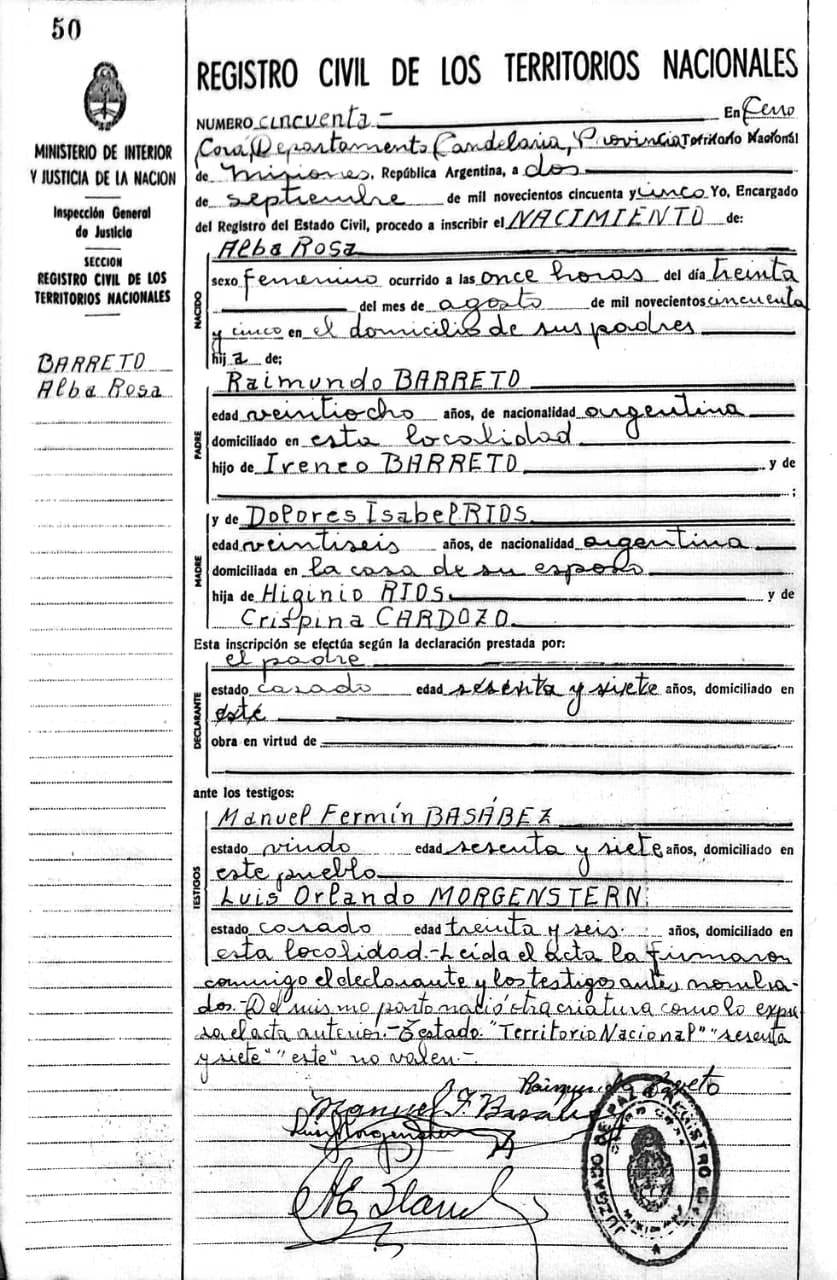 50
MINISTERIO DE INTERIOR
Y JUSTICIA DE LA NACION
Inspección General
de Justicia
SECCION
REGISTRO CIVIL DE LOS
TERRITORIOS NACIONALES
BARRETO
Alba Rosa
REGISTRO CIVIL DE LOS TERRITORIOS NACIONALES
NUMERO cincuenta - En Cerro
Corá, Departamento Candelaria, Provincia Territorio Nacional
de Misiones, República Argentina, a dos
de septiembre de mil novecientos cincuenta y cinco Yo, Encargado
del Registro del Estado Civil, procedo a inscribir el NACIMIENTO de:
Alba Rosa
NACIDO
sexo femenino ocurrido a las once horas del día treinta
del mes de agosto de mil novecientos cincuenta
y cinco en el domicilio de sus padres
hija de;
Raimundo BARRETO
PADRE
edad veintiocho años, de nacionalidad argentina
domiciliado en esta localidad
hijo de Ireneo BARRETO y de
;
y de Dolores Isabel RIOS
MADRE
edad veintiseis años, de nacionalidad argentina
domiciliada en la casa de su esposo
hija de Higinio RIOS. y de
Crispina CARDOZO.
Esta inscripción se efectúa según la declaración prestada por:
el padre
DECLARANTE
estado casado edad sesenta y siete años, domiciliado en
esté
obra en virtud de
ante los testigos:
Manuel Fermín BASÁBEZ
TESTIGOS
estado viudo edad sesenta y siete años, domiciliado en
este pueblo
Luis Orlando MORGENSTERN
estado casado edad treinta y seis. años, domiciliado en
esta localidad.-Leida el acta la firmaron
conmigo el declarante y los testigos antes nombra-
dos.-Del mismo parto nació otra criatura como lo expre
sa el acta anterior.-Testado: "Territorio Nacional" "sesenta
y siete" "este" no valen.-
Raimundo Barreto
Manuel F. Basabez
Luis Morgenstern
JUZGADO DE PAZ Y REGISTRO CIVIL
MISIONES